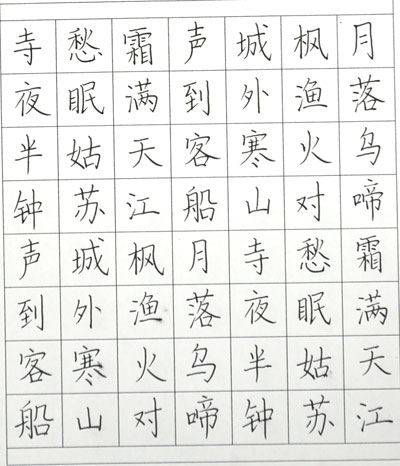 月落乌啼霜满天江
枫渔火对愁眠姑苏
城外寒山寺夜半钟
声到客船月落乌啼
霜满天江枫渔火对
愁眠姑苏城外寒山
寺夜半钟声到客船